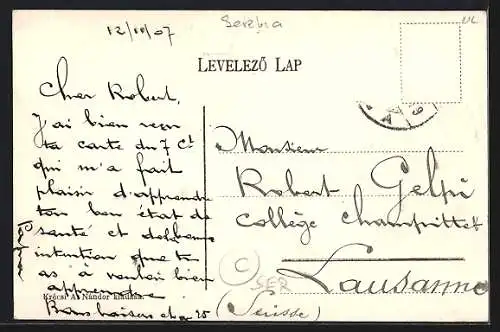 12/11/07
Serbia
LEVELEZŐ LAP
Cher Robert,
J'ai bien reçu
ta carte du 7 Ct
qui m'a fait
plaisir d'apprendre
ton bon état de
santé et de
intention que tu
as à vouloir bien
apprendre
Krécsi A. Nándor kiadása.
Bons baisers
Monsieur
Robert Gelpi
collège Champittet
Lausanne
(Suisse)
C
SER